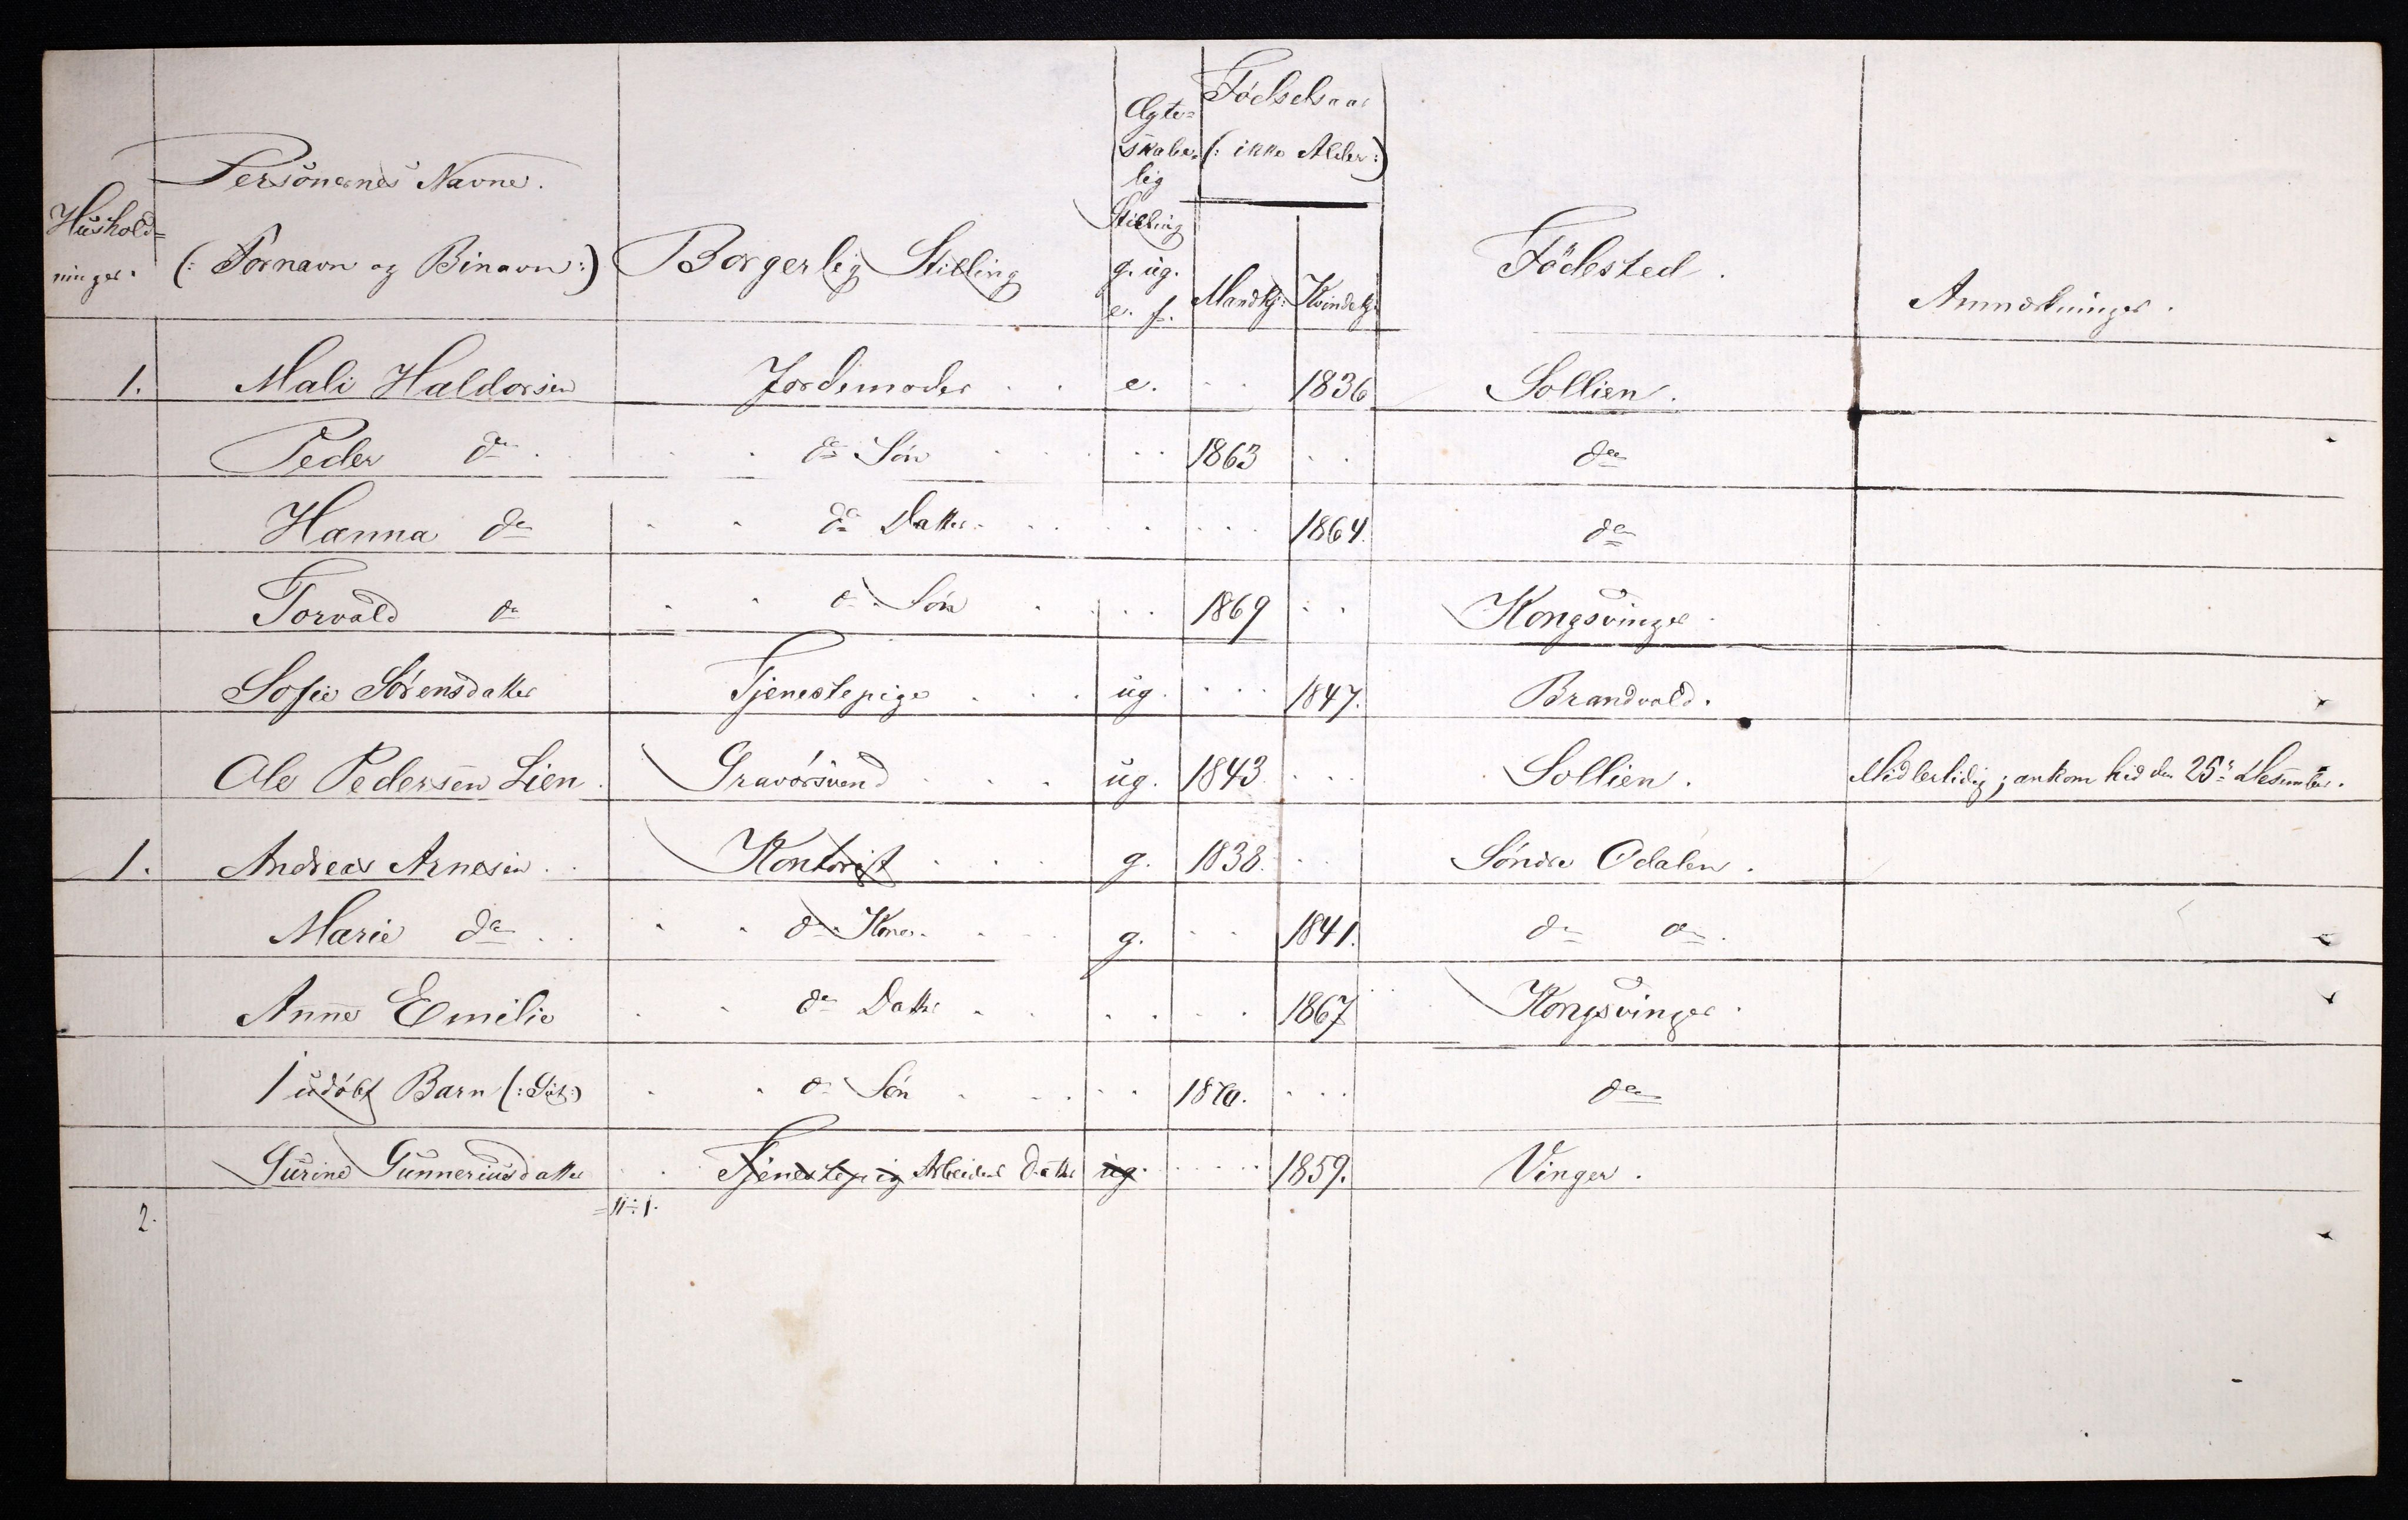 Hushold=
ninger.
Personernes Navne.
(: Fornavn og Binavn :)
Borgerlig Stilling
Ægte=
skabe-
lig
Stilling
g. ug.
e. f.
Födselsaar
(: ikke Alder :)
Mandkj: Kvindekj:
Födested.
Anmærkninger.
1. Mali Haldorsen Jordemoder . . e. . . 1836 Sollien.
Peder do . . . do Sön . . 1863 . . do
Hanna do . . do Datter . . . . 1864. do
Torvald do . . do Sön . . 1869 . . Kongsvinger.
Sofie Sörensdatter Tjenestepige . . . ug. . . . 1847. Brandvold.
Ole Pedersen Lien. Gravörsvend . . . ug. 1843 . . . Sollien. Midlertidig; ankom hid den 25de Desember.
1. Andreas Arnesen . . Kontorist . . . g. 1838. . . Söndre Odalen.
Marie do . . . . do Kone . . g. . . 1841. do do.
Anne Emilie . . do Datter . . . . . . 1867 Kongsvinger.
1 udöbt Barn (: Gut :) . . do Sön . . . . 1870. . . . do
Gurine Gunneriusdatter . . Tjenestepig Arbeider Datter ug. . . . . 1859. Vinger.
2. = 11÷1.